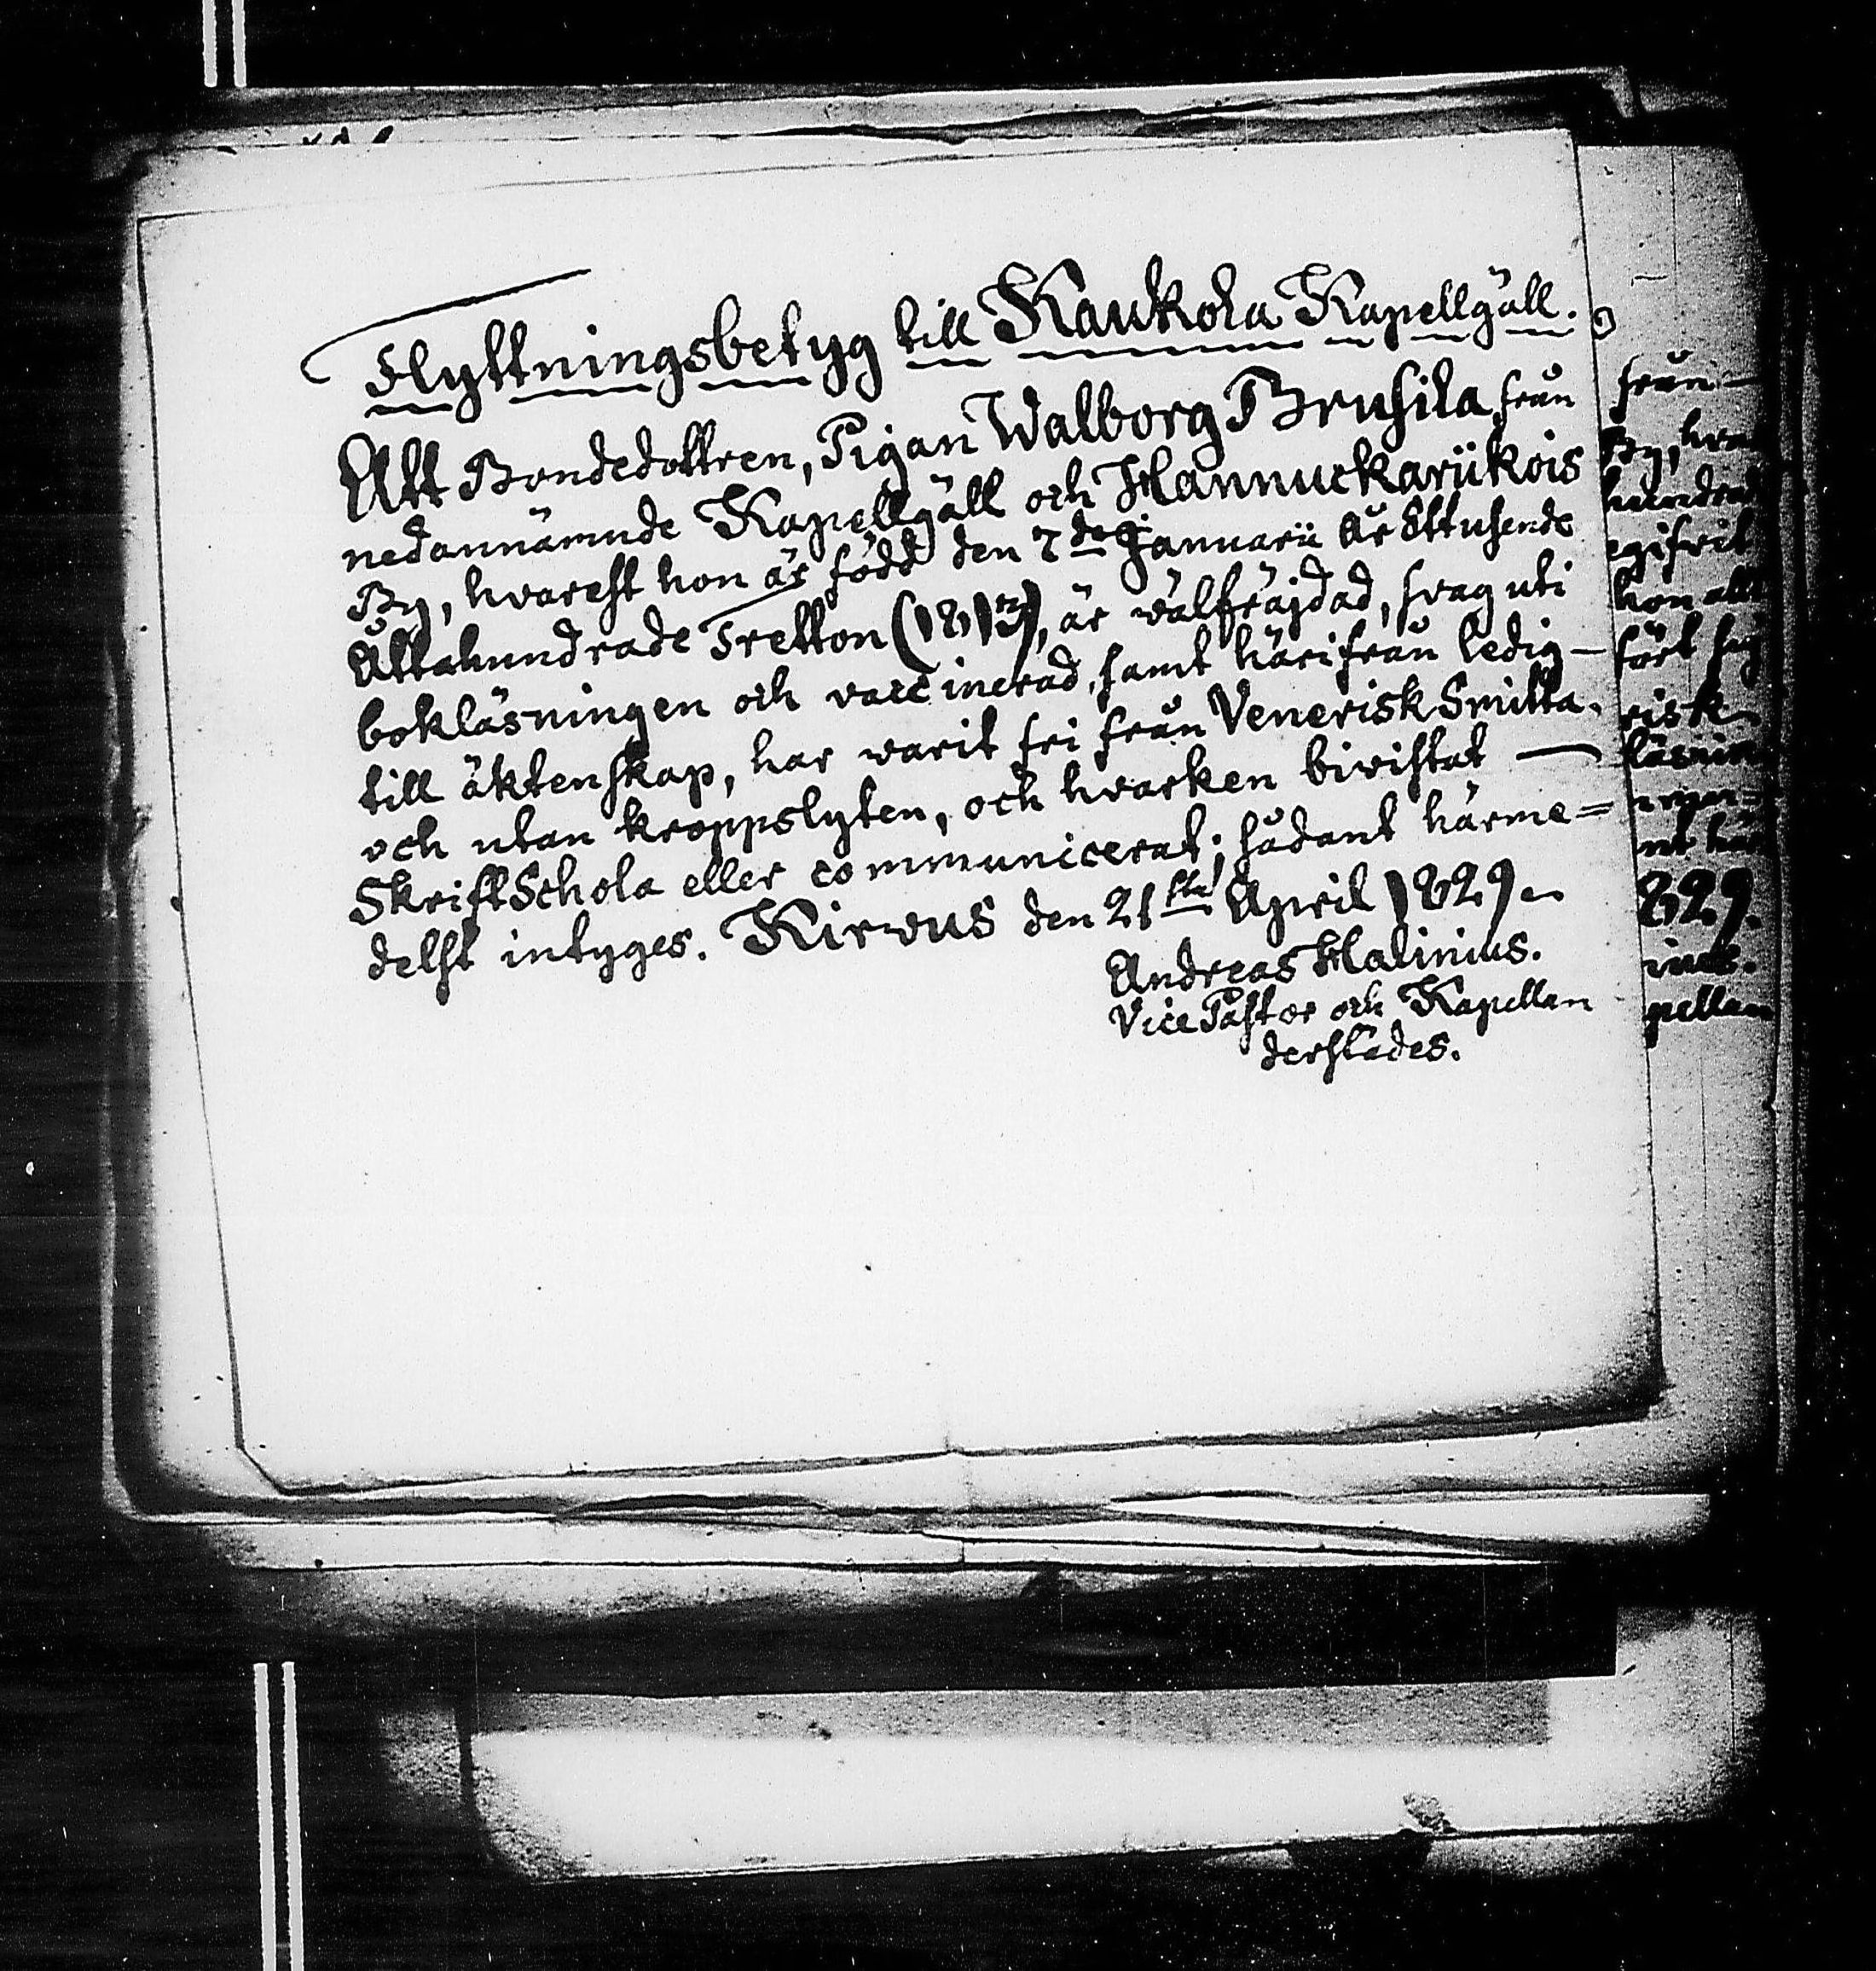 Flyttningsbetyg till Kaukola Kapellgäll.
Att Bondedottren, Pigan Walborg Brusila, från
nedannämnde Kapellgäll och Hannuckariikois
By, hvarest hon är född den 7de Januarii År Ettusende
Åttahundrade Tretton (1813), är wälfräjdad, svag uti
bokläsningen och vaccinerad, samt härifrån ledig —
till äktenskap, har warit fri från Venerisk Smitta,
och utan kroppslyten, och hvarken bivistat —
SkriftSchola eller communicerat; sådant härme=
delst intyges. Kirwus den 21sta April 1829.
Andreas Malinius.
Vice Pastor och Kapellan
derstädes.
från —
By, hva
hundrad
egifvit
hon allt
fört sig
risk
läsnin
nt här
829.
ius.
pellan